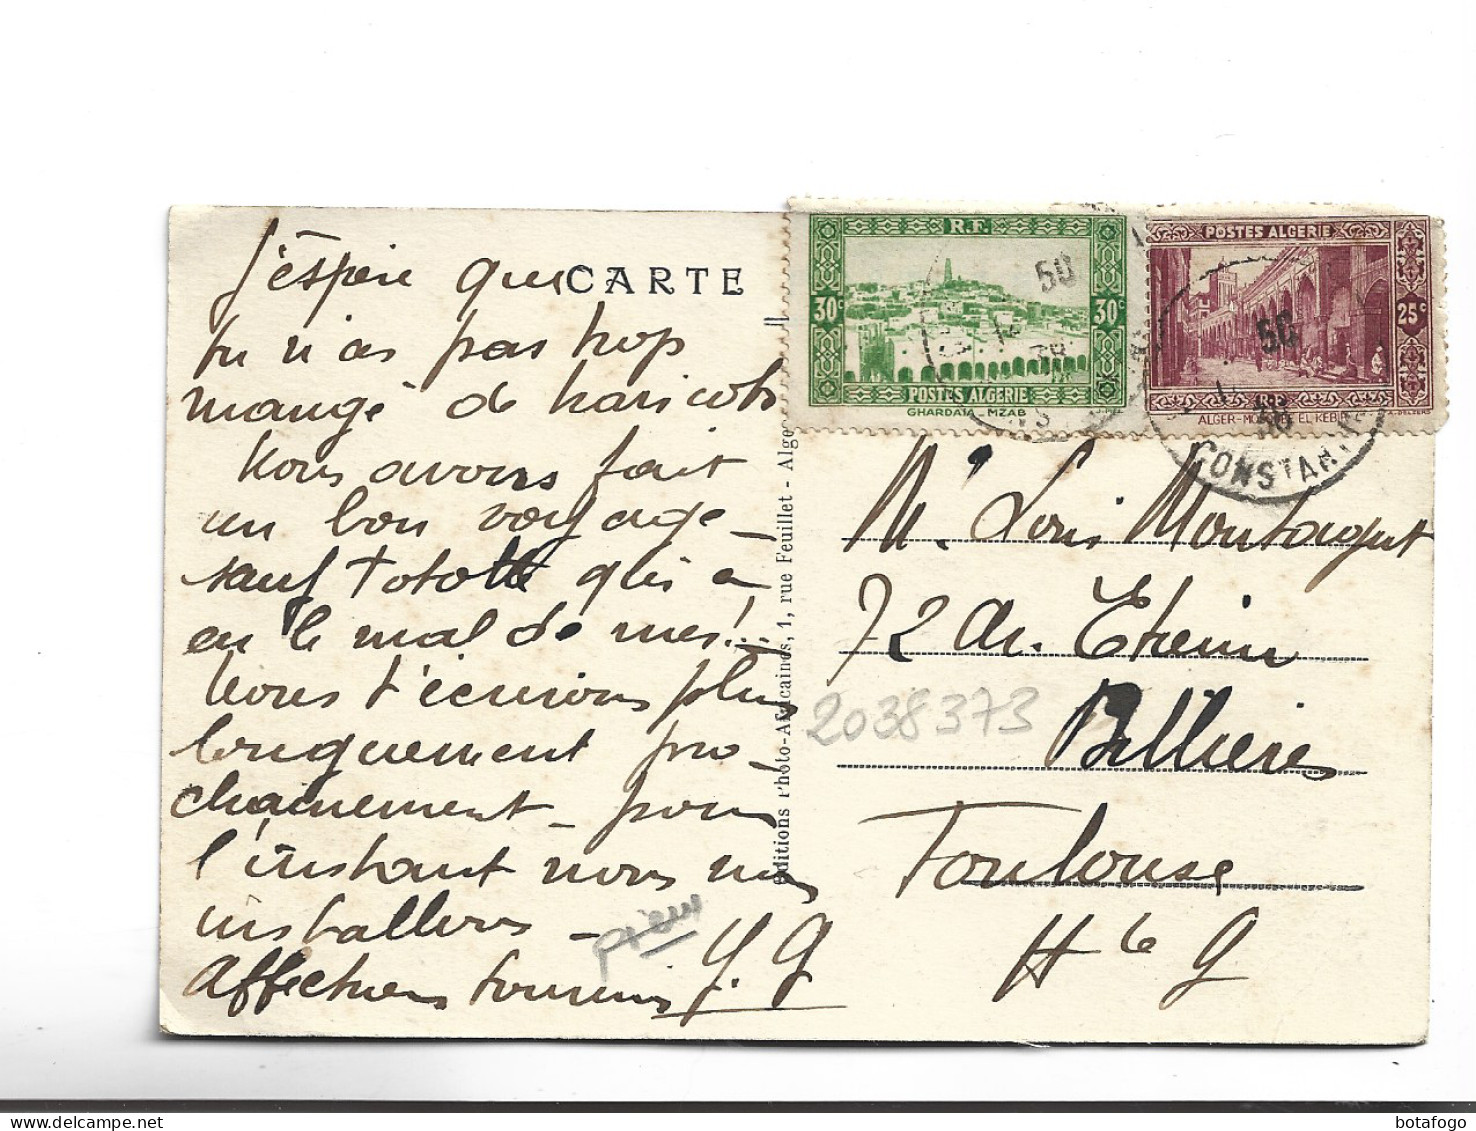 J'espère que
tu n'as pas trop
mangé de haricots
Nous avons fait
un bon voyage
sauf Totote qui a
eu le mal de mer!..
Nous t'écrirons plus
longuement pro-
chainement - pour
l'instant nous nous
installons -
Affectueux
CARTE
Editions Photo-Africaines, 1, rue Feuillet - Alger
R.F.
50
30c 30c
POSTES ALGERIE
GHARDAIA_MZAB
POSTES ALGERIE
25c
50
38
ALGER- EL KEBIR
CONSTANTINE
Mr Louis Montagut
72 Av. Etienne
2038373
Billières
Toulouse
Hte G
botafogo